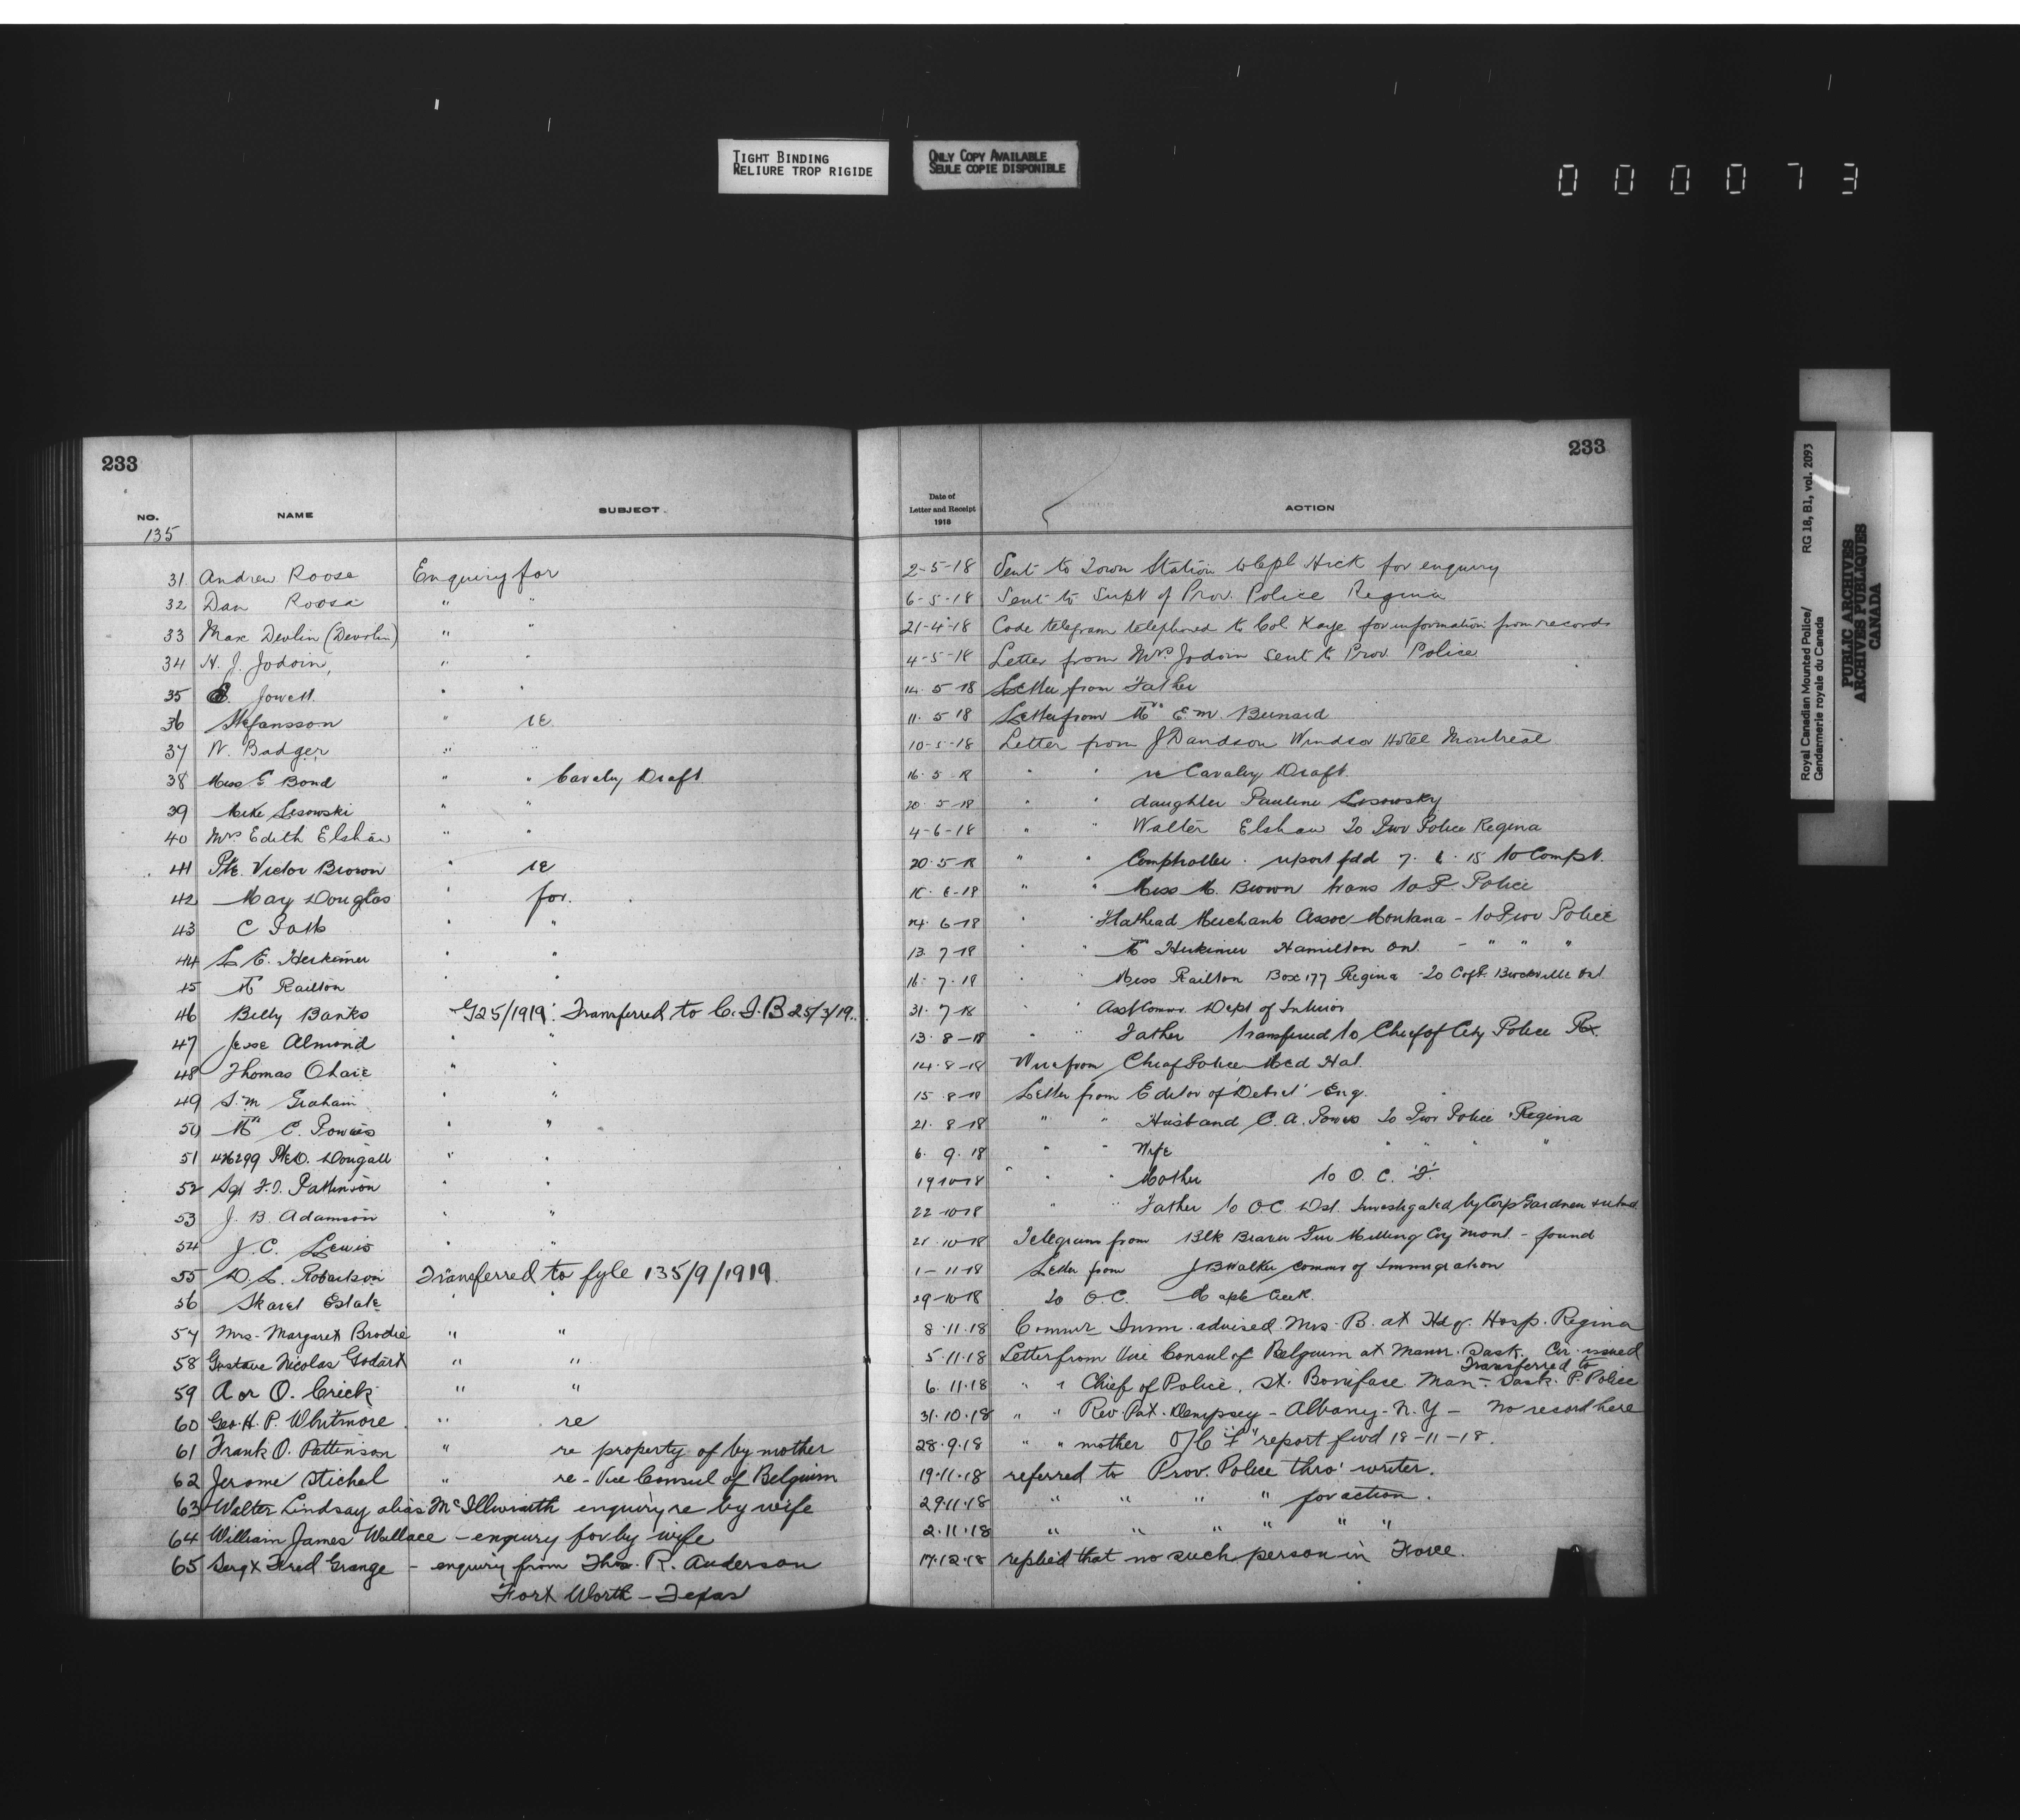 TIGHT BINDING
RELIURE TROP RIGIDE
ONLY COPY AVAILABLE
SEULE COPIE DISPONIBLE
000073
Royal Canadian Mounted Police/
Gendarmerie royale du Canada
RG 18, B1, vol. 2093
PUBLIC ARCHIVES
ARCHIVES PUBLIQUES
CANADA
233
NO. NAME SUBJECT
135
31 Andrew Roose Enquiry for
32 Dan Roose " "
33 Max Devlin (Devolin) " "
34 H. J. Jodoin, " "
35 E. Jowett " "
36 Stefansson " re
37 W. Badger " "
38 Miss E Bond " " Cavalry Draft
39 Mike Lesowski " "
40 Mrs Edith Elshaw " "
41 Pte. Victor Brown " re
42 Mary Douglas " for.
43 C " "
44 L E. Herkimer " "
45 Railton " "
46 Billy Banks G25/1919: Transferred to C.I.B 25/3/19.
47 Jesse Almond " "
48 Thomas Ohare " "
49 S. M Graham " "
50 Mrs C. Powers " "
51 426299 Pte D. Dougall " "
52 Sgt F. O. Pattinson " "
53 J. B. Adamson " "
54 J. C. Lewis " "
55 D. L. Robertson Transferred to fyle 135/9/1919.
56 Skaret Estate " "
57 Mrs. Margaret Brodie " "
58 Gustave Nicolas Godart " "
59 A or O. Crick " "
60 Geo. H. P. Whitmore " re
61 Frank O. Pattinson " re property of by mother
62 Jerome Stichel " re - Vice Consul of Belguim
63 Walter Lindsay alias McIllwraith enquiry re by wife
64 William James Wallace - enquiry for by wife
65 Sergt Fred Grange - enquiry from Thos. R. Anderson
Fort Worth - Texas
233
Date of
Letter and Receipt
1918
ACTION
2-5-18 Sent to Town Station to Cpl Hick for enquiry
6-5-18 Sent to Supt of Prov. Police Regina
21-4-18 Code telegram telephoned to Col Kaye for information from records
4-5-18 Letter from Mrs Jodoin sent to Prov Police
14. 5-18 Letter from Father
11. 5 18 Letter from Mrs E. M. Bernard
10-5-18 Letter from J Davidson Windsor Hotel Montreal
16. 5-18 " " re Cavalry Draft.
20. 5-18 " " daughter Pauline Lesowsky
4-6-18 " " Walter Elshaw To Prov Police Regina
20. 5-18 " " Comptroller. report fdd 7. 6. 18 to Compt.
18. 6-18 " " Miss M. Brown trans to P. Police
14. 6-18 " " Flathead Merchants Assoc Montana - to Prov Police
13. 7-18 " " Mrs Herkimer Hamilton Ont. - " " "
16. 7. 18 " " Miss Railton Box 177 Regina - To Brockville Ont
31. 7-18 " " Asst Commr. Dept of Interior
13. 8-18 " " Father transferred to Chief of City Police Rx.
14. 8-18 Wire from Chief Police Med Hat.
15. 8-18 Letter from Editor of Eng.
21. 8-18 " " Husband C. A. Powers To Prov Police Regina
6. 9. 18 " " Wife " " " "
19 10-18 " " Mother to O. C. 'F'.
22-10-18 " " Father to O.C. Dist. Investigated by Corp Gardner
21. 10-18 Telegram from Blk Beaver Fur Milling Coy Mont. - found
1-11-18 Letter from J B Walker Commr of Immigration
29-10-18 To O.C. Maple Creek.
8.11.18 Commr Imm. advised Mrs. B. at Hdqr. Hosp. Regina
5.11.18 Letter from Vice Consul of Belguim at Mann. Sask. Cir. issued
6.11.18 " " Chief of Police, St. Boniface Man - Transferred to Sask. P. Police
31.10.18 " " Rev Pat. Dempsey - Albany - N. Y - No record here
28.9.18 " " mother O/C "F" report fwd 18-11-18.
19.11.18 referred to Prov. Police thro' writer.
29.11.18 " " " " for action.
2.11.18 " " " " " "
17.12.18 replied that no such person in Force.